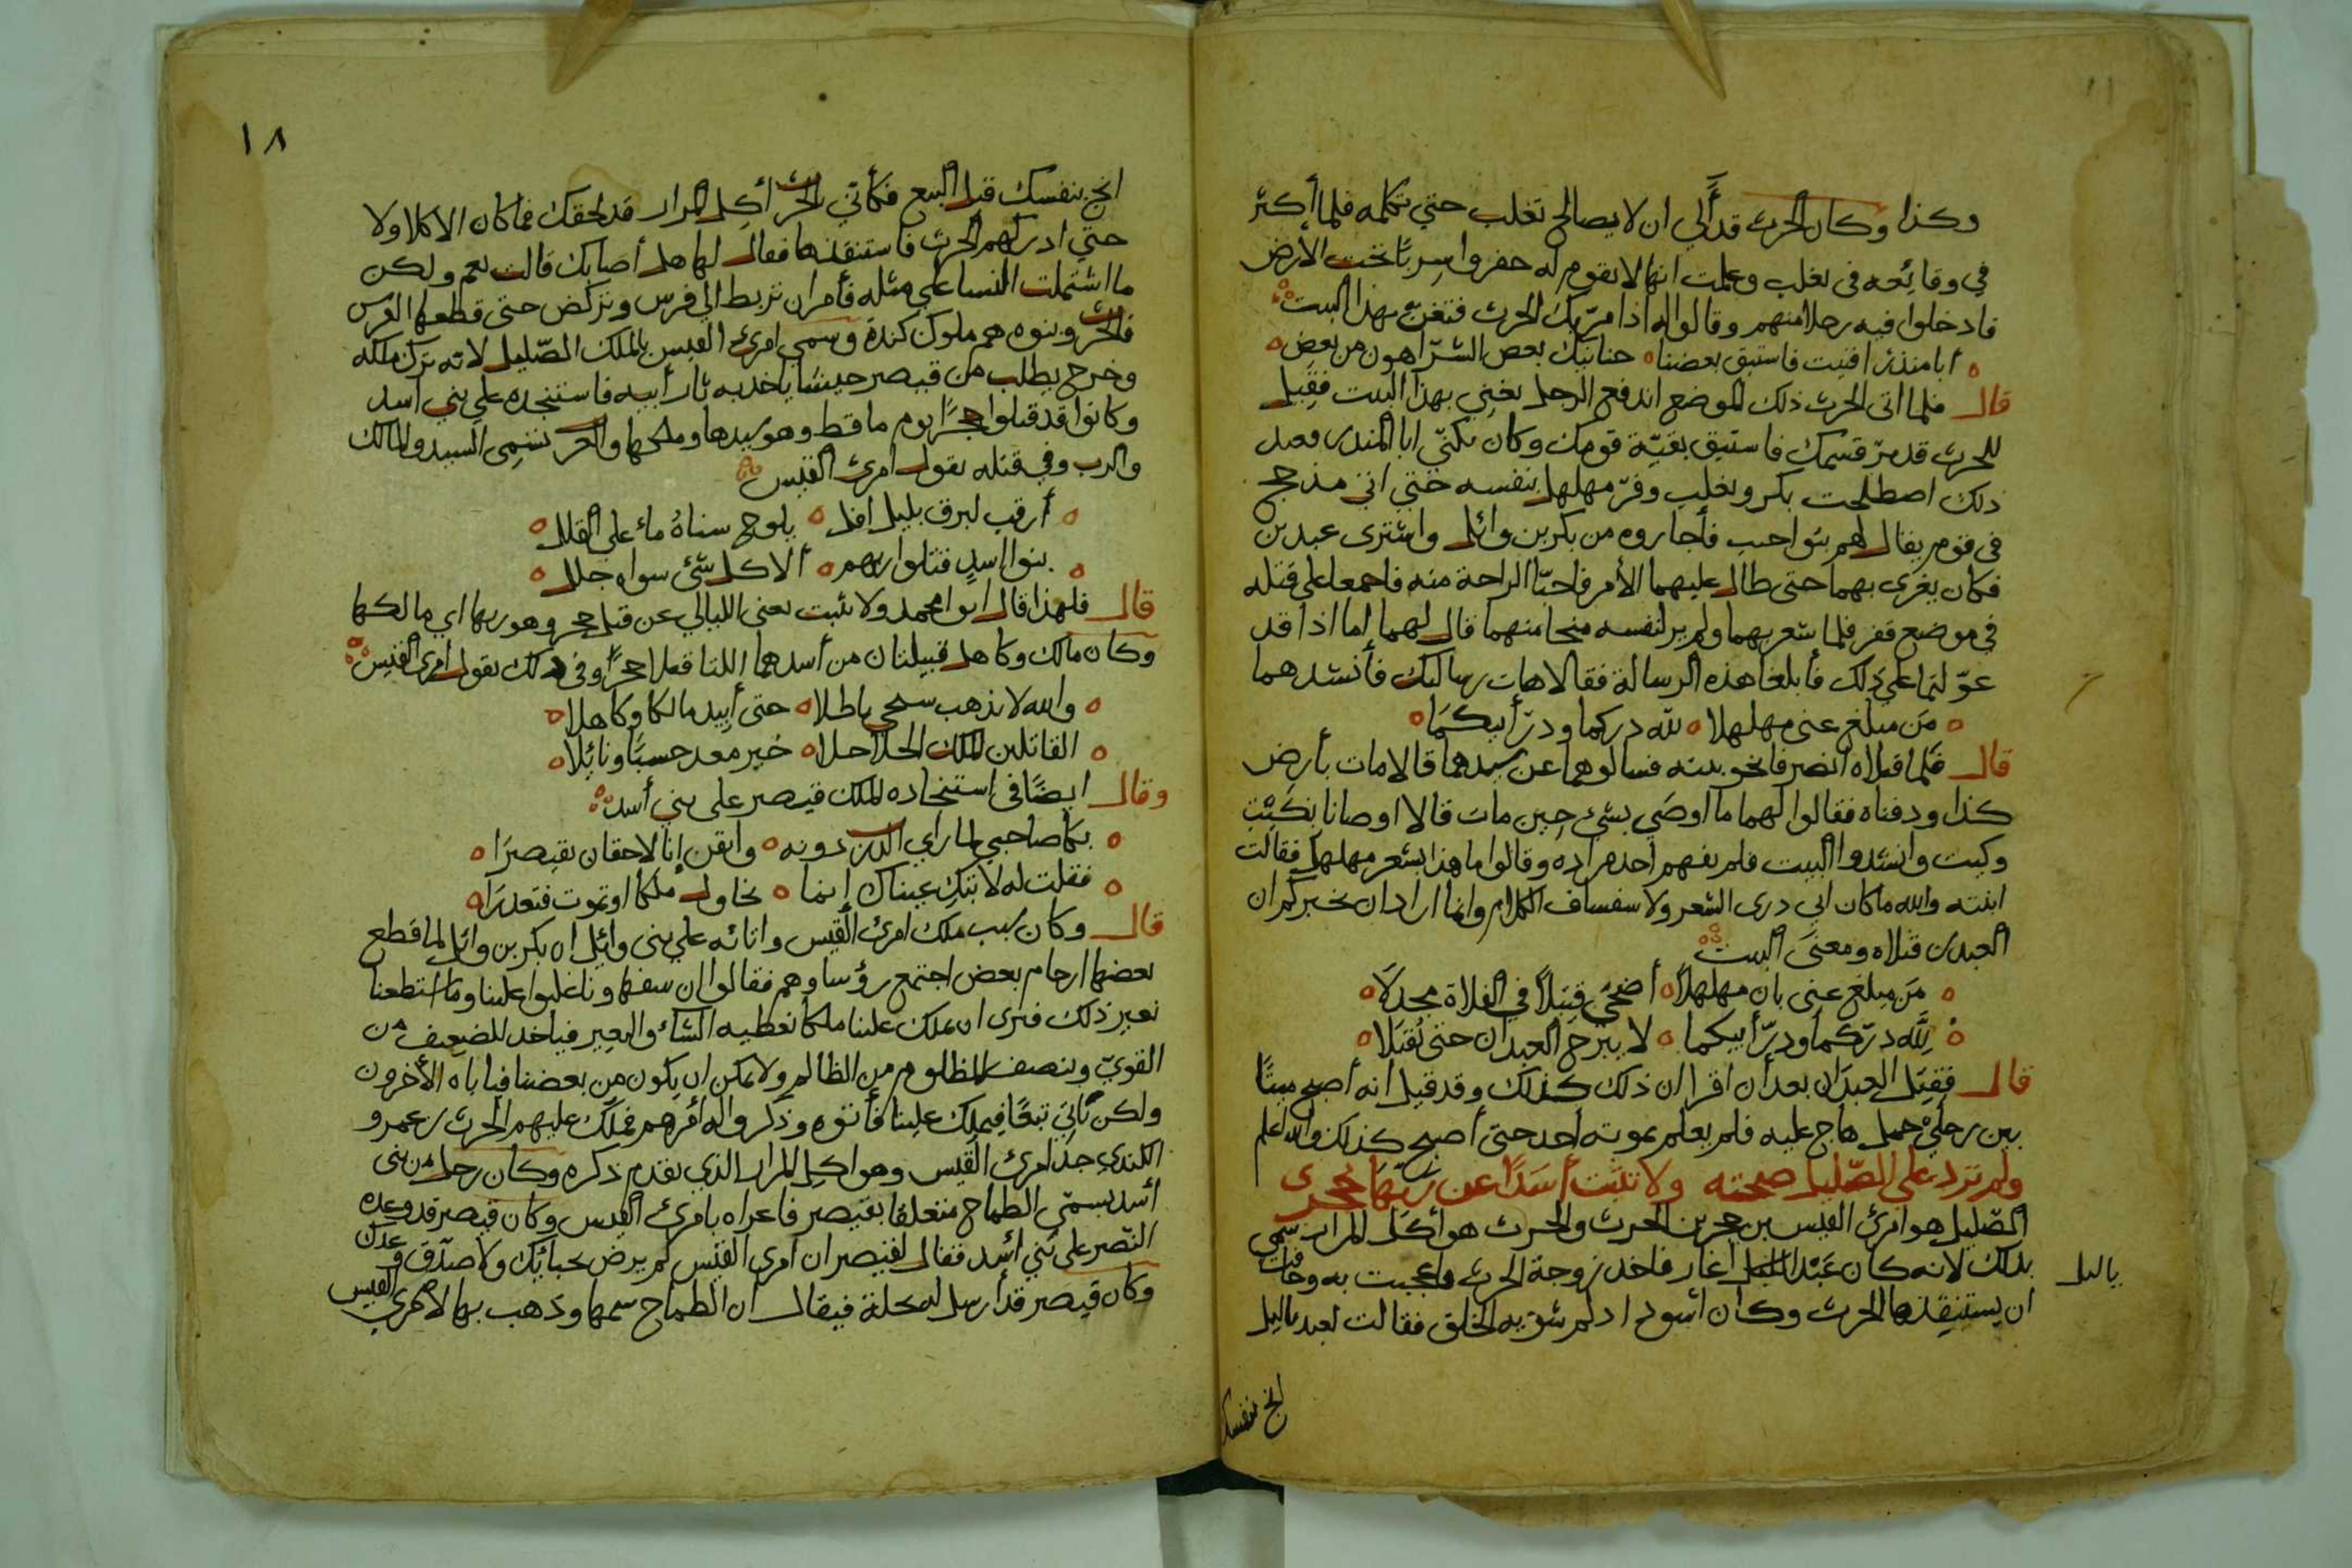 وكذا وكان الحرث قد آلي ان لا يصالح تغلب حتي تكلمه فلما أكثر
في وقائعه في تغلب وعلمت انها لا تقوم له حفروا سربًا تحت الأرض
فادخلوا فيه رجلا منهم وقالوا له اذا مرّ بك الحرث فتغنّ بهذا البيت
أبا منذر افنيت فاستبق بعضنا حنانيك بعض الشرّ اهون من بعض
قال فلما اتى الحرث ذلك الموضع اندفع الرجل يغني بهذا البيت فقيل
للحرث قد برّ قسمك فاستبق بقيّة قومك وكان يكنّي ابا المنذر ففعل
ذلك اصطلحت بكر وتغلب وفرّ مهلهل بنفسه حتي اتي مذحج
في قوم يقال لهم بنوا جنب فأجاروه من بكر بن وائل واشترى عبدين
فكان يغزى بهما حتى طال عليهما الأمر فاحبّا الراحة منه فاجمعا على قتله
في موضع قفر فلما شعر بهما ولم ير لنفسه منجا منهما قال لهما اما اذا قد
عوّلتما على ذلك فأبلغا هذه الرسالة فقالا هات رسالتك فأنشدهما
مَن مبلغ عني مهلهلا لله دركما ودرّ أبيكما
قال فلما قتلاه انصرفا نحو بيته فسالوهما عن سيدهما قالا مات بأرض
كذا ودفناه فقالوا لهما ما اوصَي بشئ حين مات قالا اوصانا بكيت
وكيت وانشدوا البيت فلم يفهم احد مراده وقالوا ما هذا بشعر مهلهل فقالت
ابنته والله ما كان ابي ردى الشعر ولا سفساف الكلام وانما اراد ان يخبركم ان
العبدين قتلاه ومعنَى البيت
مَن مبلغ عني بان مهلهلاً أضحَى قتيلاً في الفلاة مجدلاَ
لِلّه درّكما ودرّ أبيكما لا يبرح العبدان حتى يُقتَلا
قال فقتل العبدَان بعد أن اقرا ان ذلك كذلك وقد قيل انه أصبح ميتًا
بين رجليْ جمل هاج عليه فلم يعلم بموته احد حتى أصبح كذلك والله اعلم
ولم ترد على الضّليل صحته ولا تثنت أسَدًا عن ربّها حجرى
الضّليل هو امرئ القيس بن حجر بن الحرث والحرث هو أكل المرار سمّي
بذلك لانه كان عَبْد ياليل اغار فاخذ زوجة الحرث واعجبت به وخافت
ياليل
ان يستنقذها الحرث وكان اسود ادلم شويه الخلق فقالت لعبد ياليل
انج بنفسك
١٨
انج بنفسك قبل البيع فكأنّي بالحرث أكِل المرار قد لحقك فما كان الا كلا ولا
حتي ادركهم الحرث فاستنقذها فقال لها هل أصابك قالت نعم ولكن
ما اشتملت النسا على مثله فأمر ان تربط الي فرس وتركض حتى قطعها الفرس
فالحرث وبنوه هم ملوك كندة وسمي امرئ القيس بالملك الضّليل لانه ترك ملكه
وخرج يطلب من قيصر جيشًا ياخذ به ثار أبيه فاستنجده على بني اسد
وكانوا قد قتلوا حجرًا يوم ماقط وهو سيدها وملكها والعرب تسمي السيد والمالك
والرب وفي قتله يقول امرئ القيس
أرقت لبرق بليل اهل يلوح سناهُ ماء على القلل
بنوا اسدٍ قتلوا ربهم ألا كل شئ سواه جلل
قال فلهذا قال ابو محمد ولا ثنت يعني الليالي عن قتل حجر وهو ربها اي مالكها
وكان مالك وكاهل قبيلتان من أسد هما اللتا قتلا حجرًا وفي ذلك يقول امرئ القيس
والله لا يذهب سعيي باطلا حتى أبيد مالكا وكاهلا
القاتلين الملك الحلاحلا خير معد حسبًا ونائلا
وقال ايضًا في استنجاده الملك قيصر على بني أسد
بكا صاحبي لما راي الدرب دونه وايقن إنا لاحقان بقيصرَا
فقلت له لا تبكِ عيناك إنما نحاول ملكا او نموت فنعذرَا
قال وكان سبب ملك امرئ القيس وابائه على بني وائل ان بكر بن وائل لما قطع
بعضها ارحام بعض اجتمع رؤساوهم فقالوا ان سفهاونا غلبوا علينا وما استطعنا
تغيير ذلك فنرى ان نملك علينا ملكا نعطيه الشاء والبعير فياخذ للضعيف من
القويّ وينصف المظلوم من الظالم ولا يمكن ان يكون من بعضنا فيأباه الأخرون
ولكن نأتي تبعًا فيملك علينا فأتوه وذكروا له امرهم فملّك عليهم الحرث بن عمرو
الكندي جد امرئ القيس وهو اكل المرار الذي تقدم ذكره وكان رجل من بني
أسد يسمّى الطماح متعلقا بقيصر فاغراه بامرئ القيس وكان قيصر قد وعده
النّصر على بني أسد فقال لقيصر ان امرى القيس لم يرض بحبائك ولا صدّق وعدك
وكان قيصر قد أرسل له بحلة فيقال ان الطماح سمها وذهب بها لامرئ القيس